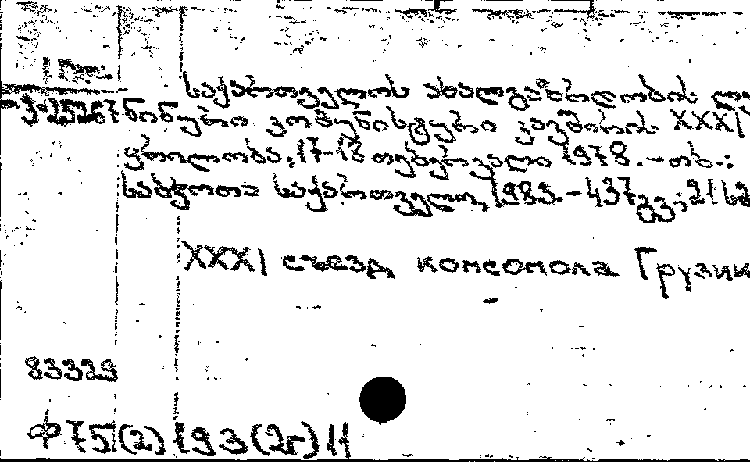 საქართველოს ახალგაზრდობის ლე
ნინური კომუნისტური კავშირის XXXI
ყრილობა, 17-18 თებერვალი 1978. - თბ.:
საბჭოთა საქართველო, 1983. - 437 გვ.; 21
XXXI съезд комсомола Грузии
83329
Ф 75(2) 193(2г) 11